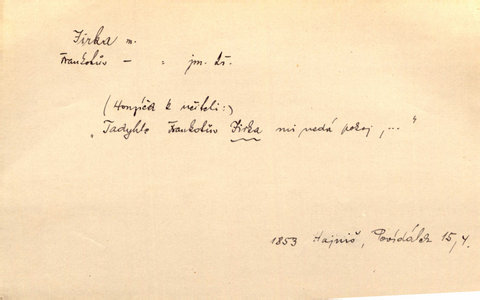 Jirka m.
Frankotův — = jm. kř.
(Honzíček k učiteli:)
„Tadyhle Frankotův Jirka mi nedá pokoj, ..."
1853 Hajniš, Povídálek 15,4.